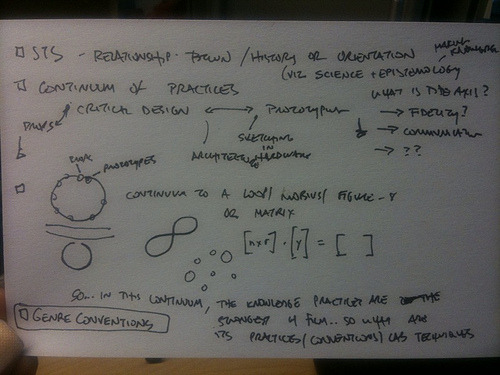 STS - RELATIONSHIP / HISTORY OR ORIENTATION
MAKING KNOWLEDGE
(VIZ SCIENCE + EPISTEMOLOGY
CONTINUUM OF PRACTICES
WHAT IS THIS AXIS?
PROPS
CRITICAL DESIGN
PROTOTYPING
→ FIDELITY?
→ COMMUNICATION
→ ??
SKETCHING
IN
HARDWARE
ARCHITECTURE
PROTOTYPES
CONTINUUM TO A LOOP / MOBIUS / FIGURE-8
OR MATRIX
[n x r] · [y] = [ ]
SO... IN THIS CONTINUUM, THE KNOWLEDGE PRACTICES ARE THE
STRONGEST 4 FILM... SO WHAT ARE
GENRE CONVENTIONS
ITS PRACTICES / CONVENTIONS / TECHNIQUES